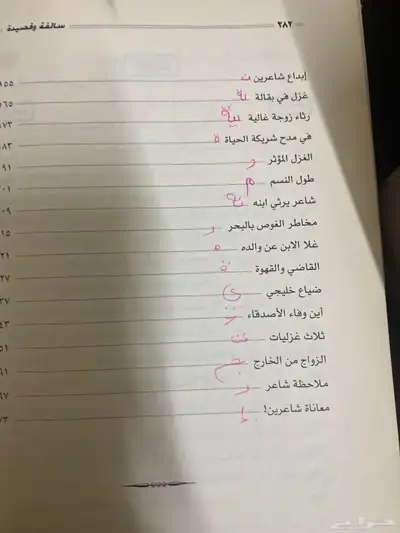 ٢٨٢ سالفة وقصيدة
إبداع شاعرين ن ١٥٥
غزل في بقالة ١٦٥
رثاء زوجة غالية ١٧٣
في مدح شريكة الحياة ة ١٨٣
الغزل المؤثر ر ١٩١
طول النسم م ٢٠١
شاعر يرثي ابنه ٢٠٩
مخاطر الغوص بالبحر ر ٢١٥
غلا الابن عن والده ه ٢٢١
القاضي والقهوة ة ٢٢٧
ضياع خليجي ي ٢٣٧
أين وفاء الأصدقاء ٢٤٣
ثلاث غزليات ت ٢٥١
الزواج من الخارج ج ٢٦١
ملاحظة شاعر ر ٢٦٧
معاناة شاعرين! ٢٧٣
حراج